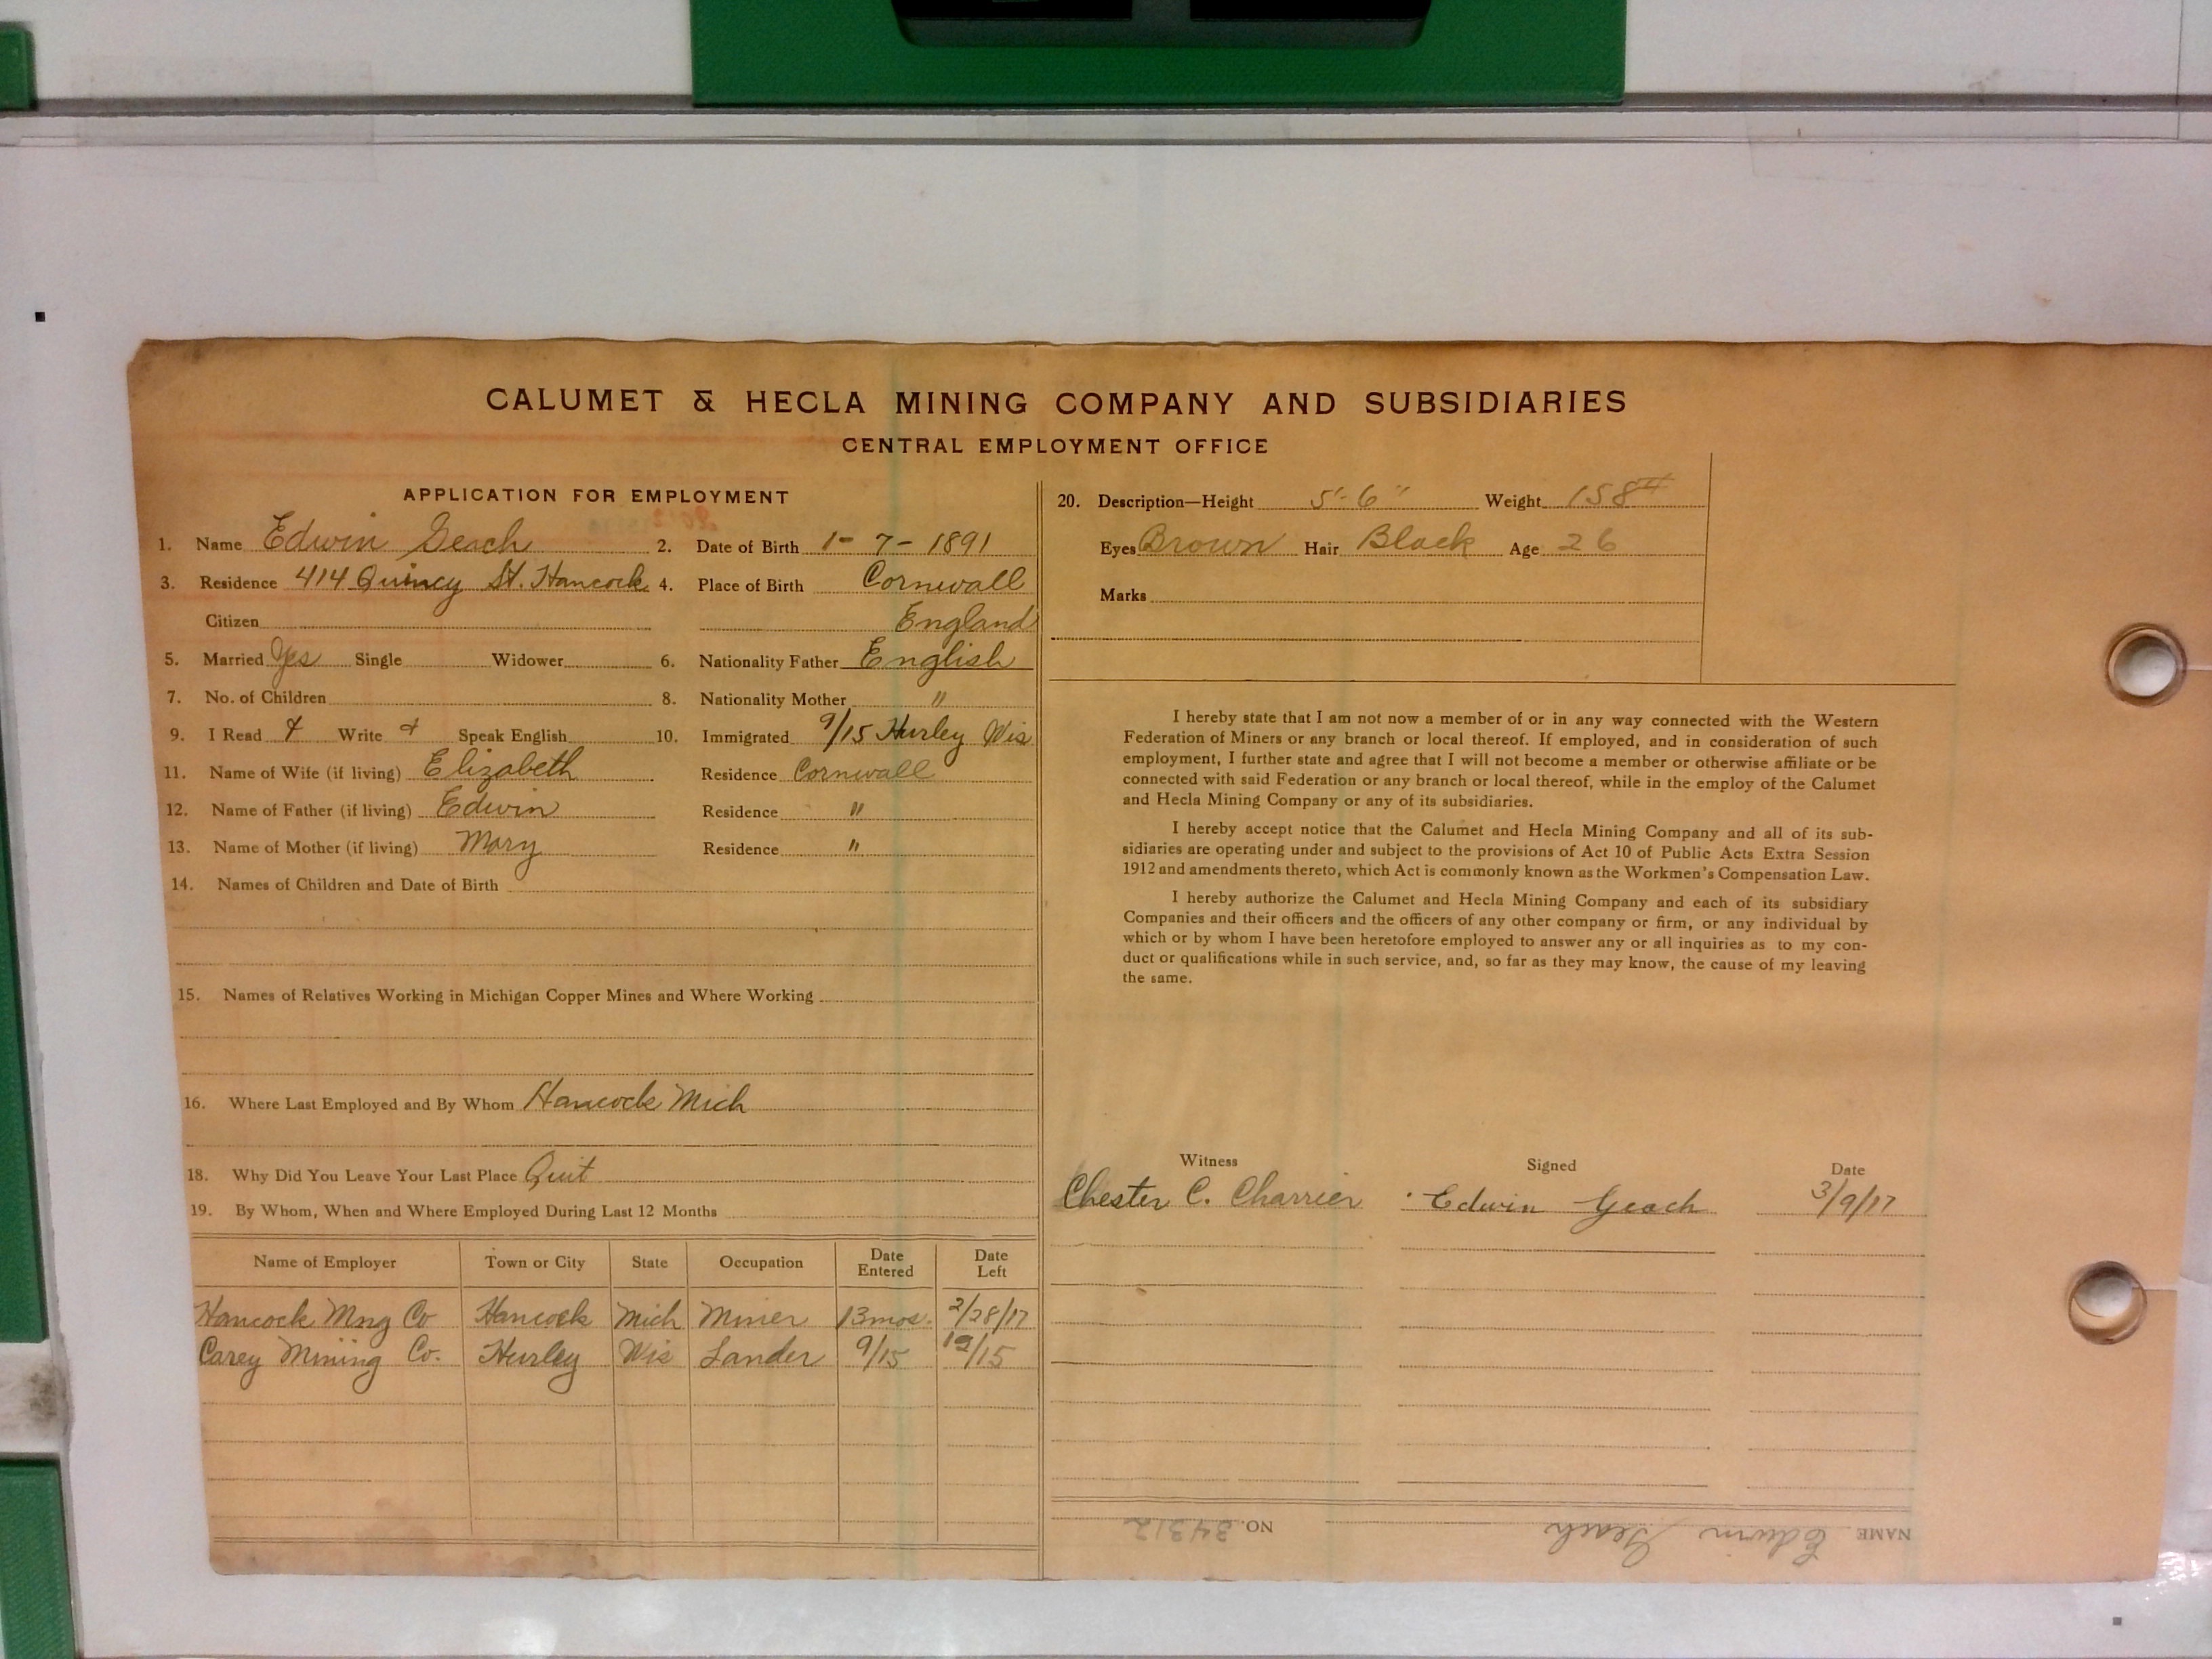 CALUMET & HECLA MINING COMPANY AND SUBSIDIARIES
CENTRAL EMPLOYMENT OFFICE
APPLICATION FOR EMPLOYMENT
1. Name Edwin Geach 2. Date of Birth 1-7-1891
3. Residence 414 Quincy St. Hancock 4. Place of Birth Cornwall
Citizen England
5. Married Yes Single Widower 6. Nationality Father English
7. No. of Children 8. Nationality Mother "
9. I Read Write Speak English 10. Immigrated 9/15 Hurley Wis
11. Name of Wife (if living) Elizabeth Residence Cornwall
12. Name of Father (if living) Edwin Residence "
13. Name of Mother (if living) Mary Residence "
14. Names of Children and Date of Birth
15. Names of Relatives Working in Michigan Copper Mines and Where Working
16. Where Last Employed and By Whom Hancock Mich
18. Why Did You Leave Your Last Place Quit
19. By Whom, When and Where Employed During Last 12 Months
Name of Employer Town or City State Occupation Date Entered Date Left
Hancock Mng Co Hancock Mich Miner 13 mos. 2/28/17
Carey Mining Co. Hurley Wis Lander 9/15 12/15
20. Description—Height 5'-6" Weight 158#
Eyes Brown Hair Black Age 26
Marks
I hereby state that I am not now a member of or in any way connected with the Western
Federation of Miners or any branch or local thereof. If employed, and in consideration of such
employment, I further state and agree that I will not become a member or otherwise affiliate or be
connected with said Federation or any branch or local thereof, while in the employ of the Calumet
and Hecla Mining Company or any of its subsidiaries.
I hereby accept notice that the Calumet and Hecla Mining Company and all of its sub-
sidiaries are operating under and subject to the provisions of Act 10 of Public Acts Extra Session
1912 and amendments thereto, which Act is commonly known as the Workmen's Compensation Law.
I hereby authorize the Calumet and Hecla Mining Company and each of its subsidiary
Companies and their officers and the officers of any other company or firm, or any individual by
which or by whom I have been heretofore employed to answer any or all inquiries as to my con-
duct or qualifications while in such service, and, so far as they may know, the cause of my leaving
the same.
Witness Signed Date
Chester C. Charrier Edwin Geach 3/9/17
NAME Edwin Geach NO. 34312